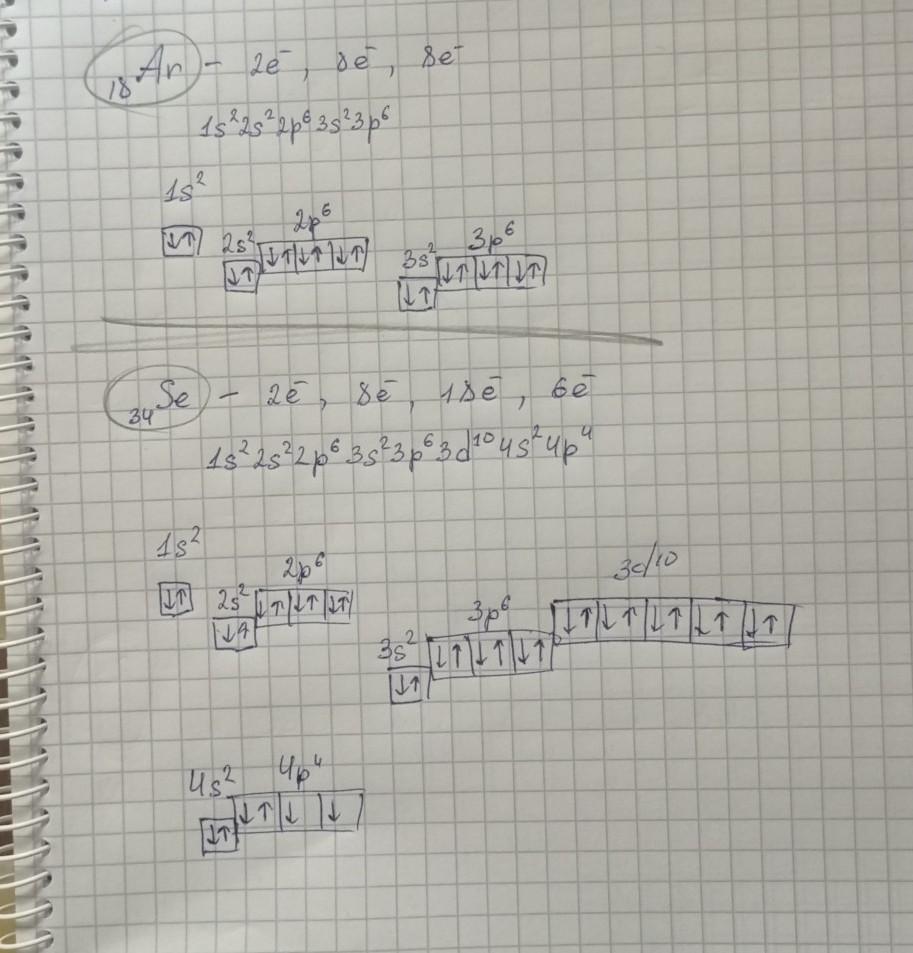 ₁₈Ar - 2e⁻, 8e⁻, 8e⁻
1s²2s²2p⁶3s²3p⁶
1s²
2s² 2p⁶ 3s² 3p⁶
↓↑ ↓↑ ↓↑ ↓↑ ↓↑ ↓↑ ↓↑ ↓↑ ↓↑
₃₄Se - 2e⁻, 8e⁻, 18e⁻, 6e⁻
1s²2s²2p⁶3s²3p⁶3d¹⁰4s²4p⁴
1s²
2s² 2p⁶ 3s² 3p⁶ 3d10
↓↑ ↓↑ ↓↑ ↓↑ ↓↑ ↓↑ ↓↑ ↓↑ ↓↑ ↓↑ ↓↑ ↓↑ ↓↑ ↓↑
4s² 4p⁴
↓↑ ↓↑ ↓ ↓